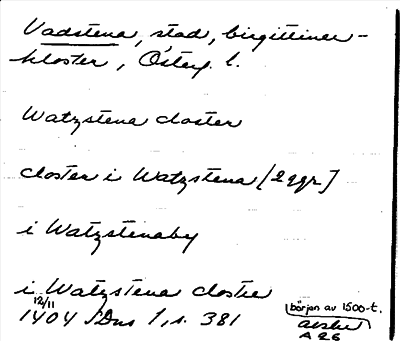 Vadstena, stad, birgittiner-
kloster, Österg. l.
Watzstena closter
closter i Watzstena [2 ggr]
i Watzstenaby
i Watzstena closter
12/11
1404 SDns 1, s. 381
början av 1500-t.
avskr
A 26